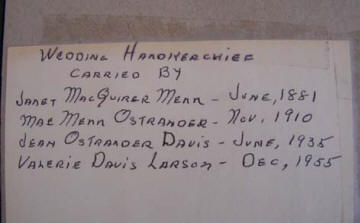 WEDDING HANDKERCHIEF
CARRIED BY
JANET MACQUIRER MENN - JUNE, 1881
MAE MENN OSTRANDER - NOV. 1910
JEAN OSTRANDER DAVIS - JUNE, 1935
VALERIE DAVIS LARSON - DEC, 1955